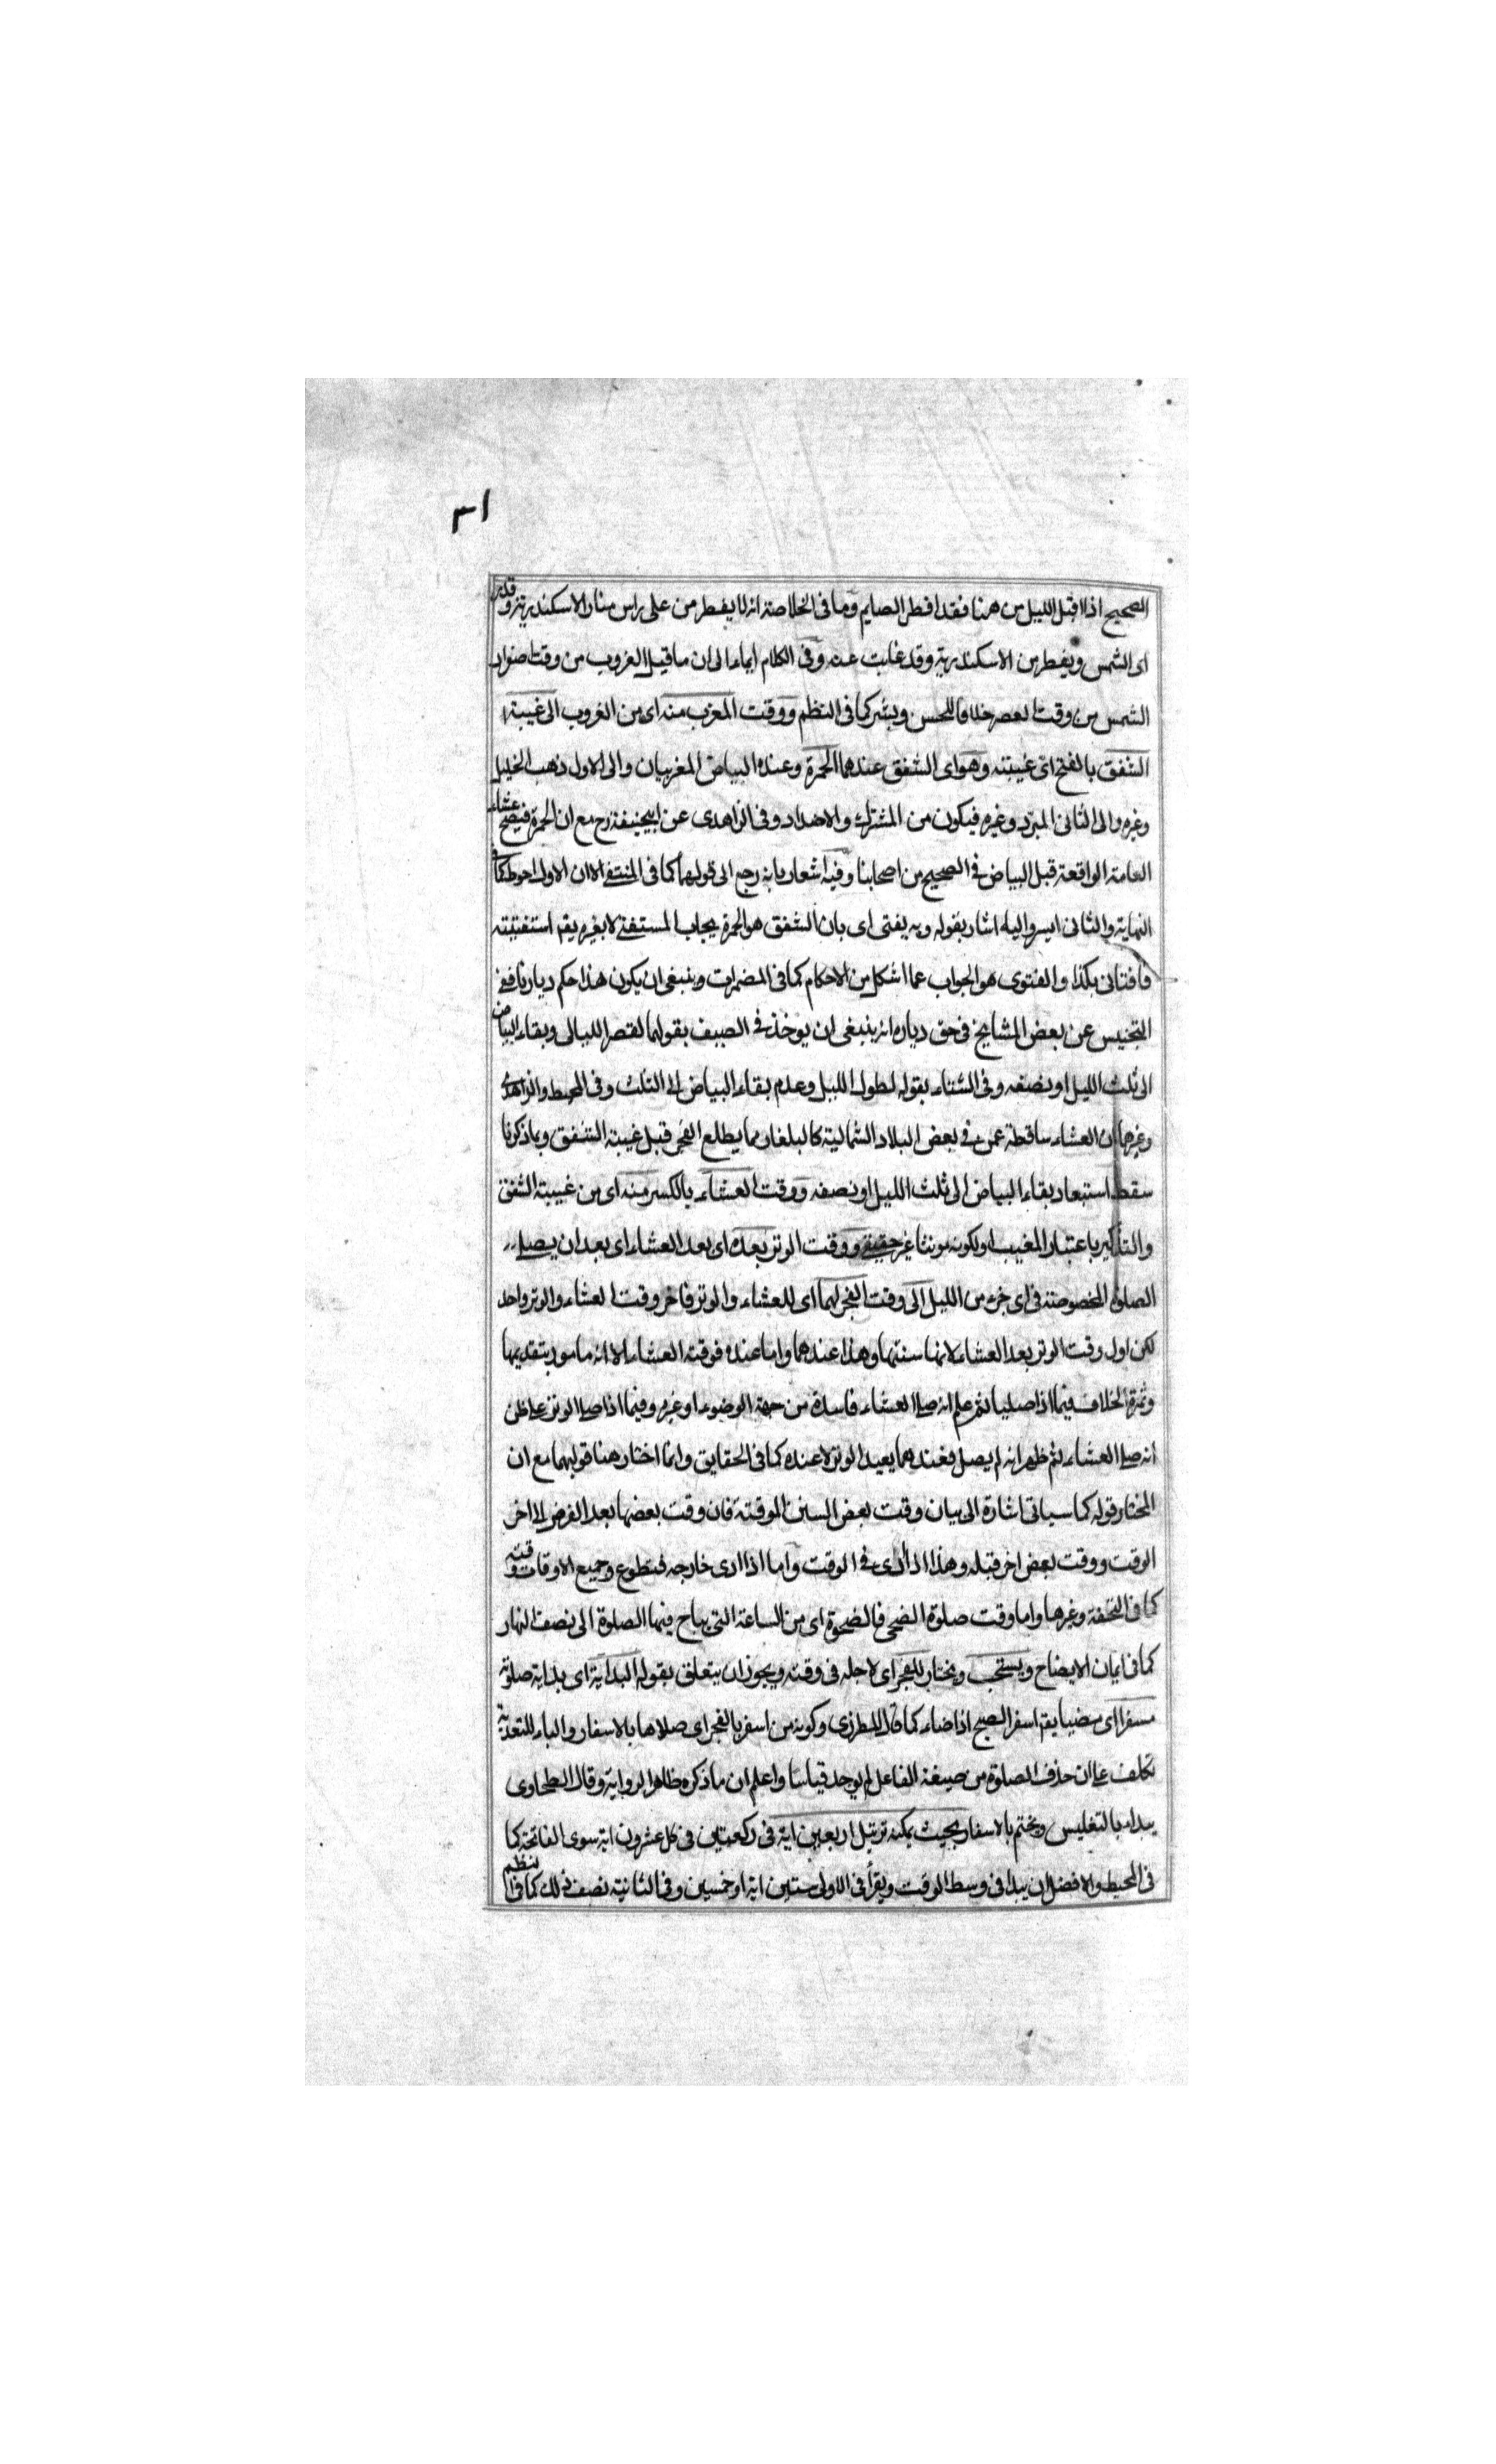 ٣١
الصحيح اذا اقبل الليل من هنا فقد افطر الصايم وما فى الخلاصة انه لا يفطر من على راس منار الاسكندرية وقد يرى
اى الشمس ويفطر من الاسكندرية وقد غابت عنه وفى الكلام ايماء الى ان ما قبيل الغروب من وقت اصفرار
الشمس من وقت العصر خلافا للحسن وبشر كما فى النظم ووقت المغرب منه اى من الغروب الى غيبة
الشفق بالفتح اى غيبته وهو اى الشفق عندهما الحمرة وعنده البياض المغربيان والى الاول ذهب الخليل
وغيره والى الثانى المبرد وغيره فيكون من المشترك والاضداد وفى الزاهدى عن ابيحنيفة رح مع ان الحمرة فيصح عشاء
العامة الواقعة قبل البياض فى الصحيح من اصحابنا وفيه اشعار بانه رجع الى قولهما كما فى المنتفى الا ان الاول احوط كما فى
النهاية والثانى ايسر واليه اشار بقوله وبه يفتى اى بان الشفق هو الحمرة يجاب المستفتى لا بغيره يقم استفتيته
فافتانى بكذا والفتوى هو الجواب عما اشكل من الاحكام كما فى المضمرات وينبغى ان يكون هذا حكم ديارنا ففى
التجنيس عن بعض المشايخ فى حق دياره انه ينبغى ان يوخذ فى الصيف بقولهما لقصر الليالى وبقاء البياض
الى ثلث الليل او نصفه وفى الشتاء بقوله لطول الليل وعدم بقاء البياض الى الثلث وفى المحيط والزاهدى
وغيرهما ان العشاء ساقطة عمن فى بعض البلاد الشمالية كالبلغار مما يطلع الفجر قبل غيبة الشفق وبما ذكرنا
سقط استبعاد بقاء البياض الى ثلث الليل او نصفه ووقت العشاء بالكسر منه اى من غيبة الشفق
والتذكير باعتبار المغيب او لكونه مونثا غير حقيقى ووقت الوتر بعده اى بعد العشاء اى بعد ان يصلى
الصلوة المخصوصة فى اى جزء من الليل الى وقت الفجر لهما اى للعشاء والوتر فاخر وقت العشاء والوتر واحد
لكن اول وقت الوتر بعد العشاء لانها سنتها وهذا عندهما واما عنده فوقته العشاء الا انه مامور بتقديمها
وثمرة الخلاف فيما اذا صليا ثم علم انه صلى العشاء فاسدة من جهة الوضوء او غيره وفيما اذا صلى الوتر على ظن
انه صلى العشاء ثم ظهر انه لم يصل فعندهما يعيد الوتر لا عنده كما فى الحقايق وانما اختار هنا قولهما مع ان
المختار قوله كما سياتى اشارة الى بيان وقت بعض السنن الموقتة فان وقت بعضها بعد الفرض الى اخر
الوقت ووقت بعض اخر قبله وهذا اذا ادى فى الوقت واما اذا ادى خارجه فتطوع وجميع الاوقات وقته
كما فى التحفة وغيرها واما وقت صلوة الضحى فالضحوة اى من الساعة التى يباح فيها الصلوة الى نصف النهار
كما فى ايمان الايضاح ويستحب ويختار للفجر اى لاجله فى وقته ويجوز ان يتعلق بقوله البداية اى بداية صلوته
مسفرا اى مضيا يقم اسفر الصبح اذا ضاء كما قال المطرزى وكونه من اسفر بالفجر اى صلاها بالاسفار والباء للتعدية
تكلف على ان حذف الصلوة من صيغة الفاعل لم يوجد قياسا واعلم ان ما ذكره ظاهر الرواية وقال الطحاوى
يبداء بالتغليس ويختم بالاسفار بحيث يمكنه ترتيل اربعين اية فى ركعتين فى كل عشرون اية سوى الفاتحة كما
فى المحيط والافضل ان يبدا فى وسط الوقت ويقرأ فى الاولى ستين اية او خمسين وفى الثانية نصف ذلك كما فى النظم